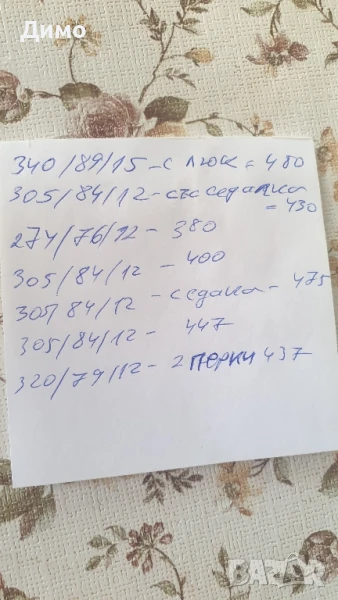 Димо
340/89/15-с люк = 480
305/84/12-със седалка
= 430
274/76/12- 380
305/84/12 - 400
305/84/12 - седалка - 475
305/84/12 - 447
320/79/12 - 2 перки 437
BAZAR